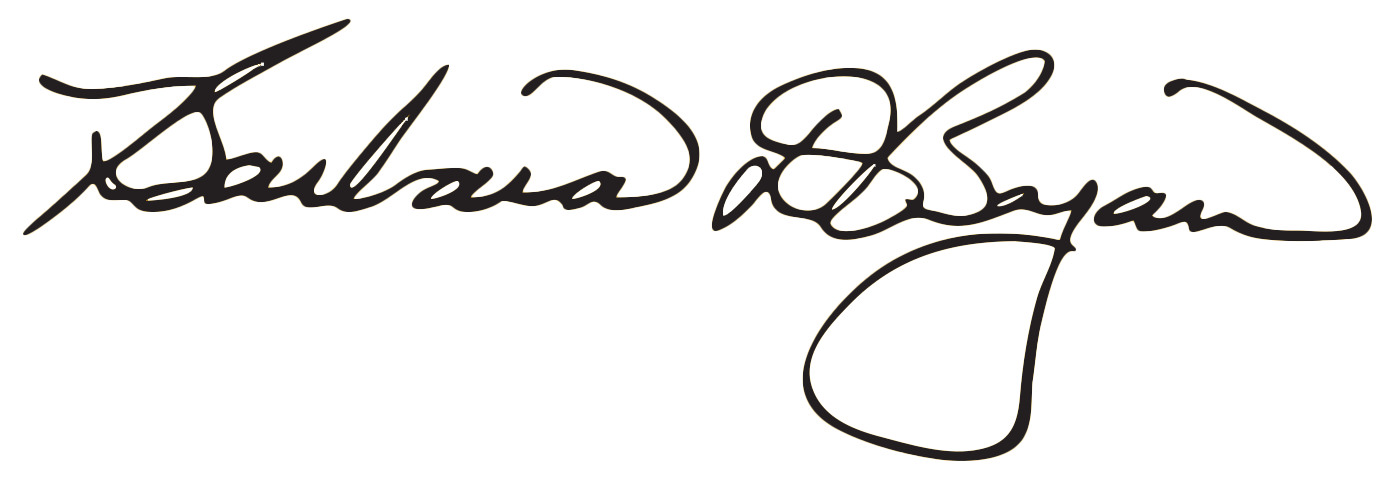 Barbara D Boyan